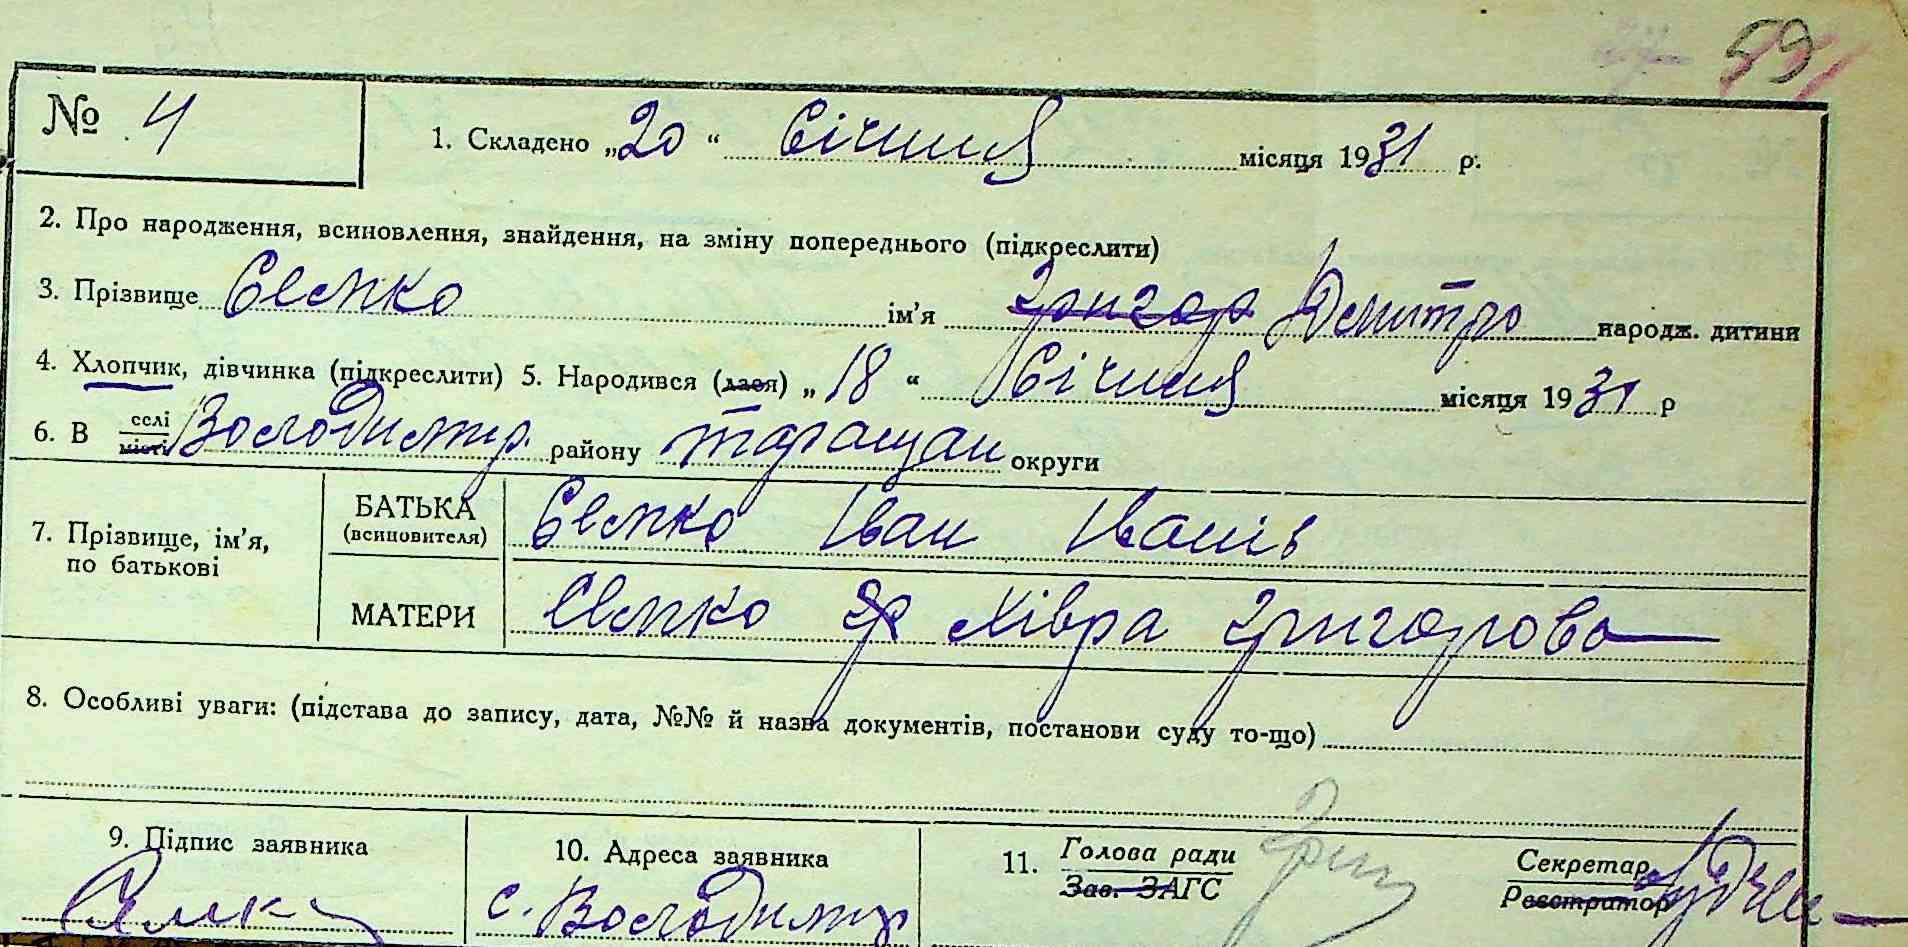 59
№ 4
1. Складено „20“ Січния місяця 1931 р.
2. Про народження, всиновлення, знайдення, на зміну попереднього (підкреслити)
3. Прізвище Єемко ім'я Григор Демитро народж. дитини
4. Хлопчик, дівчинка (підкреслити) 5. Народився (лася) „18“ Січния місяця 1931 р
6. В селі місті Володимир. району Таращан округи
7. Прізвище, ім'я, по батькові
БАТЬКА (всиновителя) Єемко Іван Іванів
МАТЕРИ Єемко Хівра Григорова
8. Особливі уваги: (підстава до запису, дата, №№ й назва документів, постанови суду то-що)
9. Підпис заявника
10. Адреса заявника
с. Володимир
11. Голова ради
Зав. ЗАГС
Секретар
Реєстратор